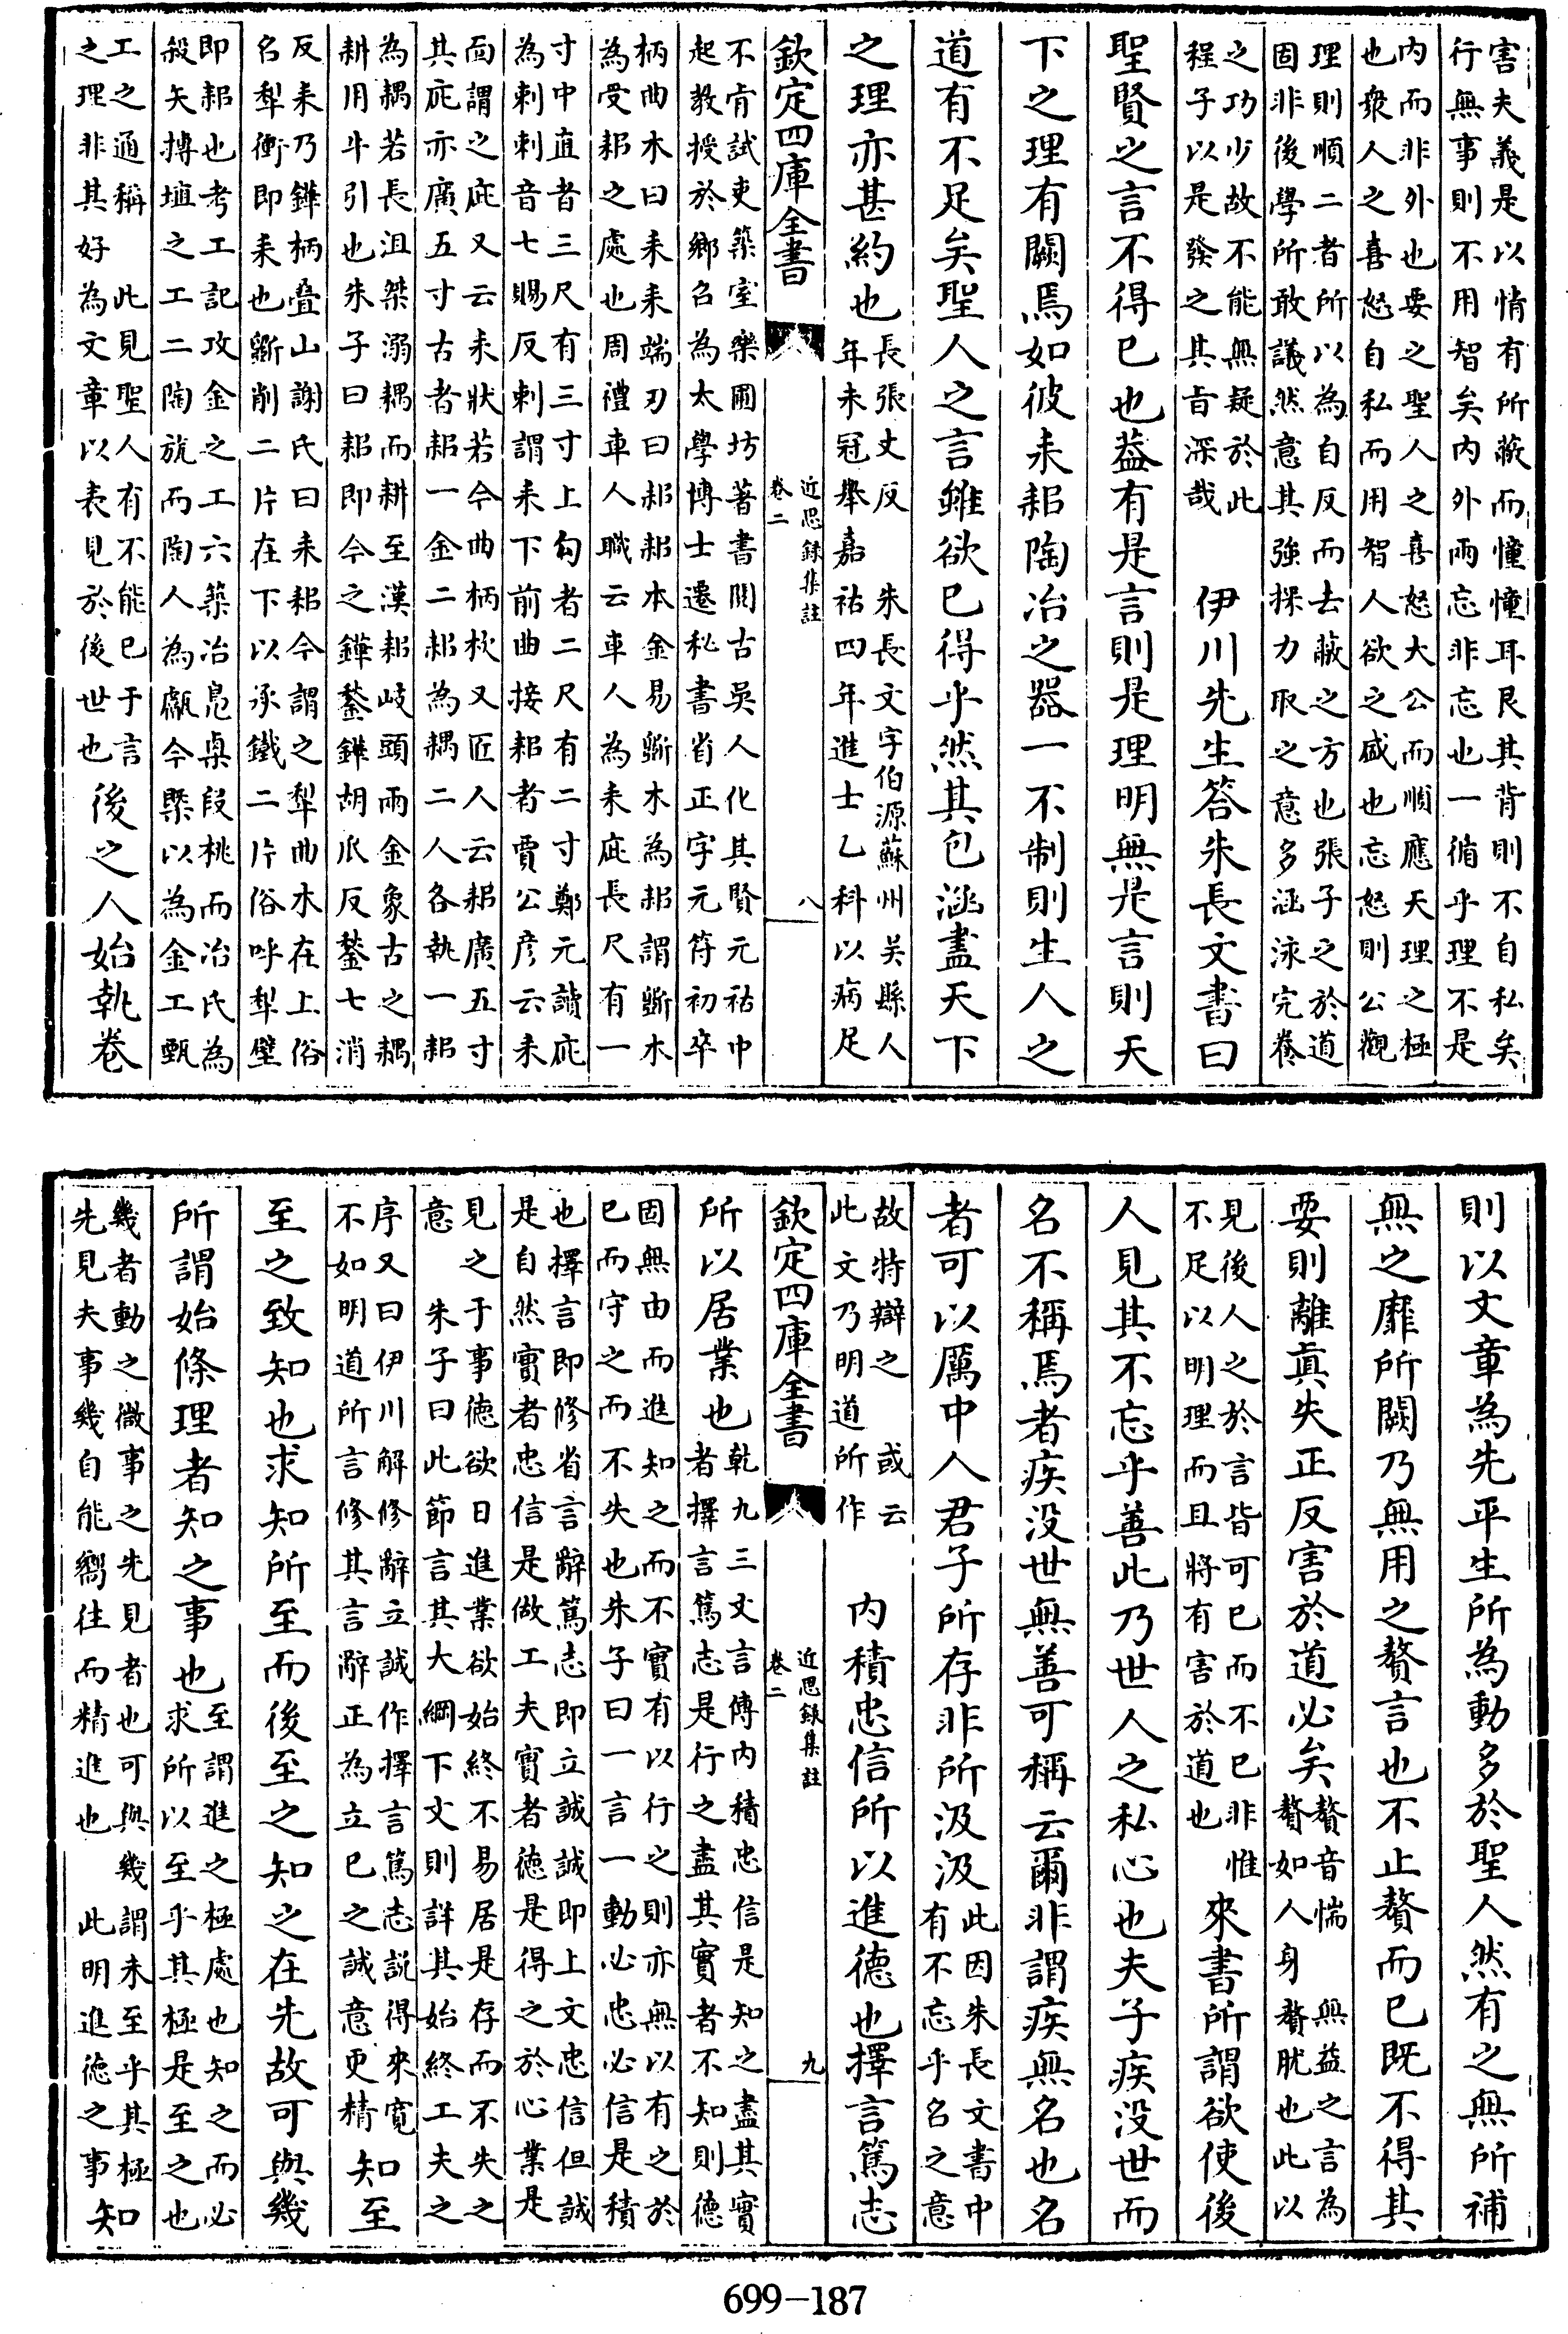 害夫義是以情有所蔽而憧憧耳艮其背則不自私矣
行無事則不用智矣内外兩忘非忘也一循乎理不是
内而非外也要之聖人之喜怒大公而順應天理之極
也衆人之喜怒自私而用智人欲之盛也忘怒則公觀
理則順二者所以為自反而去蔽之方也張子之於道
固非後學所敢議然意其強探力取之意多涵泳完養
之功少故不能無疑於此
程子以是發之其旨深哉
伊川先生答朱長文書曰
聖賢之言不得已也葢有是言則是理明無是言則天
下之理有闕焉如彼耒耜陶冶之器一不制則生人之
道有不足矣聖人之言雖欲已得乎然其包涵盡天下
之理亦甚約也
長張丈反　朱長文字伯源蘇州吴縣人
年未冠舉嘉祐四年進士乙科以病足
欽定四庫全書
近思録集註
卷二
八
不肯試吏築室樂圃坊著書閱古吴人化其賢元祐中
起教授於鄉召為太學博士遷秘書省正字元符初卒
柄曲木曰耒耒端刃曰耜耜本金易斵木為耜謂斵木
為受耜之處也周禮車人職云車人為耒庛長尺有一
寸中直者三尺有三寸上勾者二尺有二寸鄭元讀庛
為刺刺音七賜反刺謂耒下前曲接耜者賈公彦云耒
面謂之庛又云耒狀若今曲柄杴又匠人云耜廣五寸
其庛亦廣五寸古者耜一金二耜為耦二人各執一耜
為耦若長沮桀溺耦而耕至漢耜岐頭兩金象古之耦
耕用牛引也朱子曰耜即今之鏵鍫鏵胡瓜反鍫七消
反耒乃鏵柄疊山謝氏曰耒耜今謂之犁曲木在上俗
名犁衝即耒也斵削二片在下以承鐵二片俗呼犁壁
即耜也考工記攻金之工六築冶鳧㮚段桃而冶氏為
殺矢摶埴之工二陶旊而陶人為甗今槩以為金工甄
工之通稱　此見聖人有不能已于言
之理非其好為文章以表見於後世也
後之人始執卷
則以文章為先平生所為動多於聖人然有之無所補
無之靡所闕乃無用之贅言也不止贅而已既不得其
要則離真失正反害於道必矣
贅音惴　無益之言為
贅如人身贅肬也此以
見後人之於言皆可已而不已非惟
不足以明理而且將有害於道也
來書所謂欲使後
人見其不忘乎善此乃世人之私心也夫子疾没世而
名不稱焉者疾没世無善可稱云爾非謂疾無名也名
者可以厲中人君子所存非所汲汲
此因朱長文書中
有不忘乎名之意
故特辯之　或云
此文乃明道所作
内積忠信所以進德也擇言篤志
欽定四庫全書
近思録集註
卷二
九
所以居業也
乾九三文言傳内積忠信是知之盡其實
者擇言篤志是行之盡其實者不知則德
固無由而進知之而不實有以行之則亦無以有之於
已而守之而不失也朱子曰一言一動必忠必信是積
也擇言即修省言辭篤志即立誠誠即上文忠信但誠
是自然實者忠信是做工夫實者德是得之於心業是
見之于事德欲日進業欲始終不易居是存而不失之
意　朱子曰此節言其大綱下文則詳其始終工夫之
序又曰伊川解修辭立誠作擇言篤志説得來寛
不如明道所言修其言辭正為立已之誠意更精
知至
至之致知也求知所至而後至之知之在先故可與幾
所謂始條理者知之事也
至謂進之極處也知之而必
求所以至乎其極是至之也
幾者動之微事之先見者也可與幾謂未至乎其極
先見夫事幾自能嚮往而精進也　此明進德之事
知
699-187